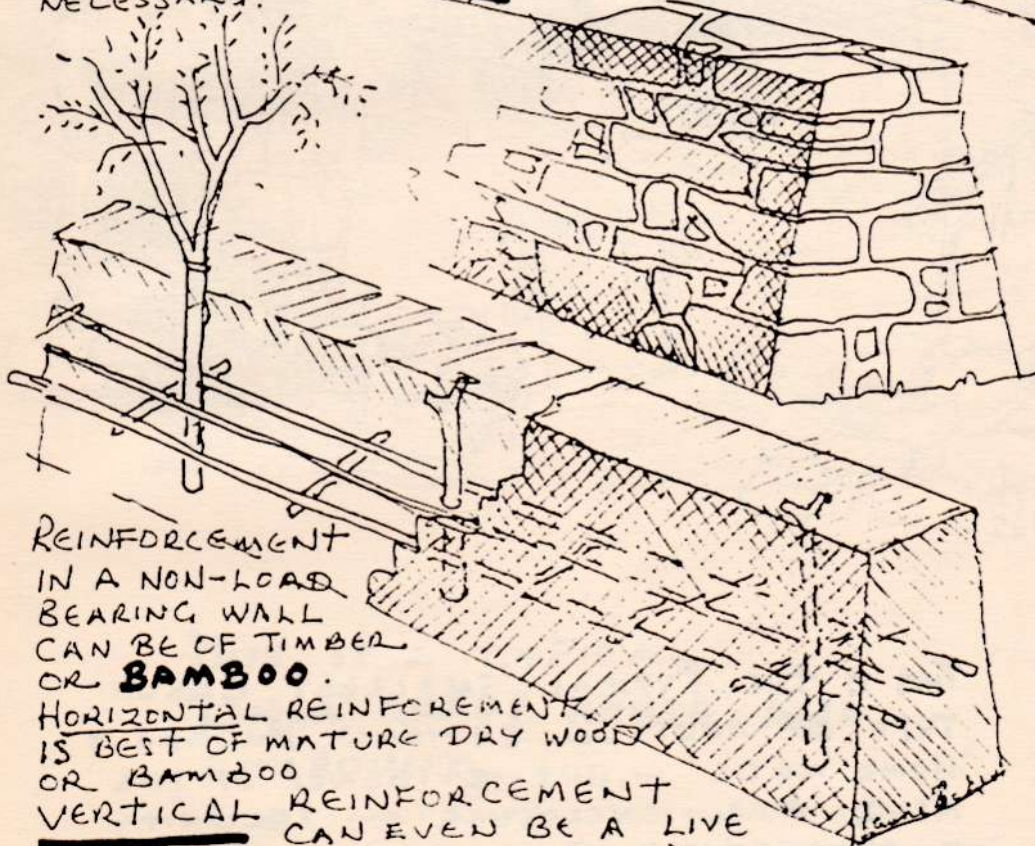 NECESSARY.
REINFORCEMENT
IN A NON-LOAD
BEARING WALL
CAN BE OF TIMBER
OR BAMBOO.
HORIZONTAL REINFOREMENT
IS BEST OF MATURE DRY WOOD
OR BAMBOO
VERTICAL REINFORCEMENT
CAN EVEN BE A LIVE